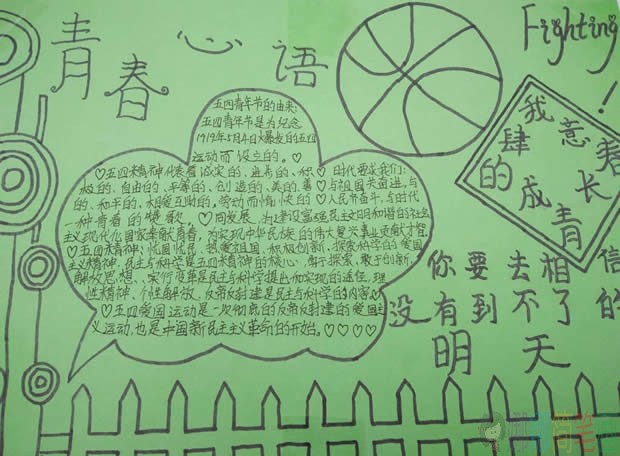 青春心语
Fighting!
我
肆意春
的成长
青
五四青年节的由来:
五四青年节是为纪念
1919年5月4日爆发的五四
运动而设立的。♡
♡五四精神代表着诚实的、进步的、积 时代要求我们:
极的、自由的、平等的、创造的、美的、善 与祖国共奋进,与
的、和平的、相爱互助的、劳动而愉快的 ♡人民书奋斗,与时代
同发展,为建设富强民主文明和谐的社会
主义现代化国家奉献青春,为实现中华民族的伟大复兴事业贡献才智。
♡五四精神:忧国忧民、热爱祖国、积极创新、探索科学的爱国
主义精神。民主与科学是五四精神的核心,勇于探索、敢于创新、
解放思想、实行变革是民主与科学提出和实现的途径,理
性精神、个性解放、反帝反封建是民主与科学的内容♡
♡五四爱国运动是一次彻底的反帝反封建的爱国主
义运动,也是中国新民主主义革命的开始。♡♡♡♡
你要去相信
没有到不了的
明天